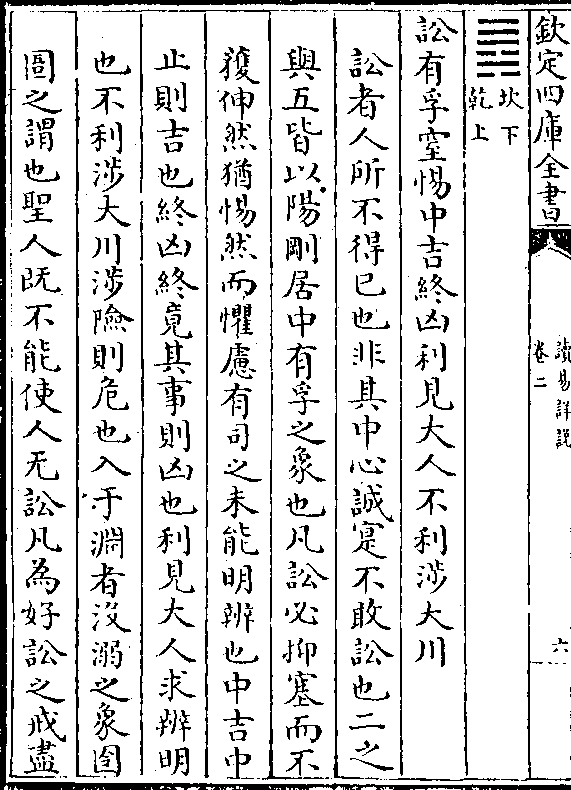 欽定四庫全書
讀易詳說
卷二
六
坎下
乾上
訟有孚窒惕中吉終凶利見大人不利涉大川
訟者人所不得已也非其中心誠寔不敢訟也二之
與五皆以陽剛居中有孚之象也凡訟必抑塞而不
獲伸然猶惕然而懼慮有司之未能明辨也中吉中
止則吉也終凶終竟其事則凶也利見大人求辨明
也不利涉大川涉險則危也入于淵者沒溺之象囹
圄之謂也聖人既不能使人无訟凡為好訟之戒盡